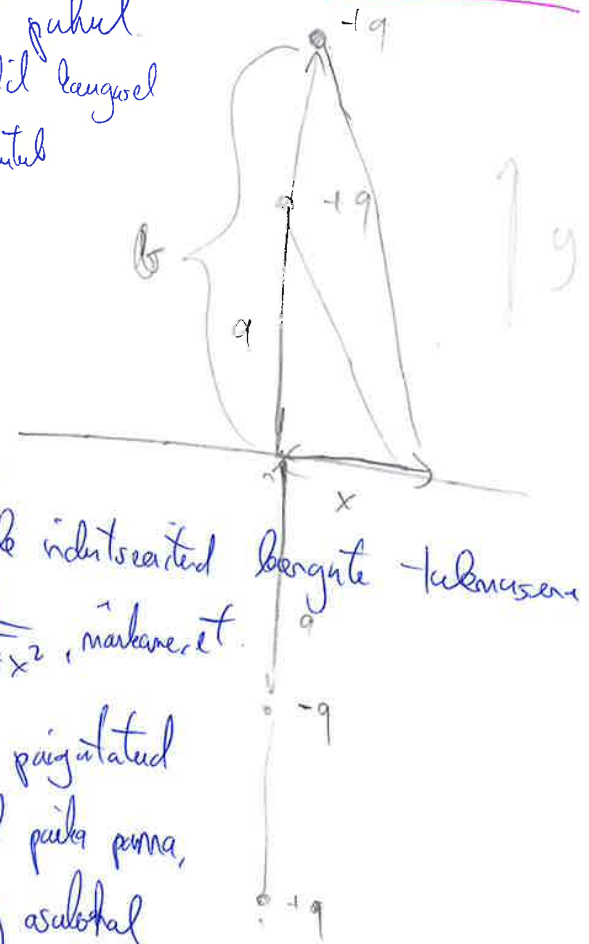 puhul
+q
il kaugusel
+q
b
y
a
x
indutseeritud laengute tulemusena
a
x², märkame, et
-q
paigutatud
paika panna,
+q
asukohal